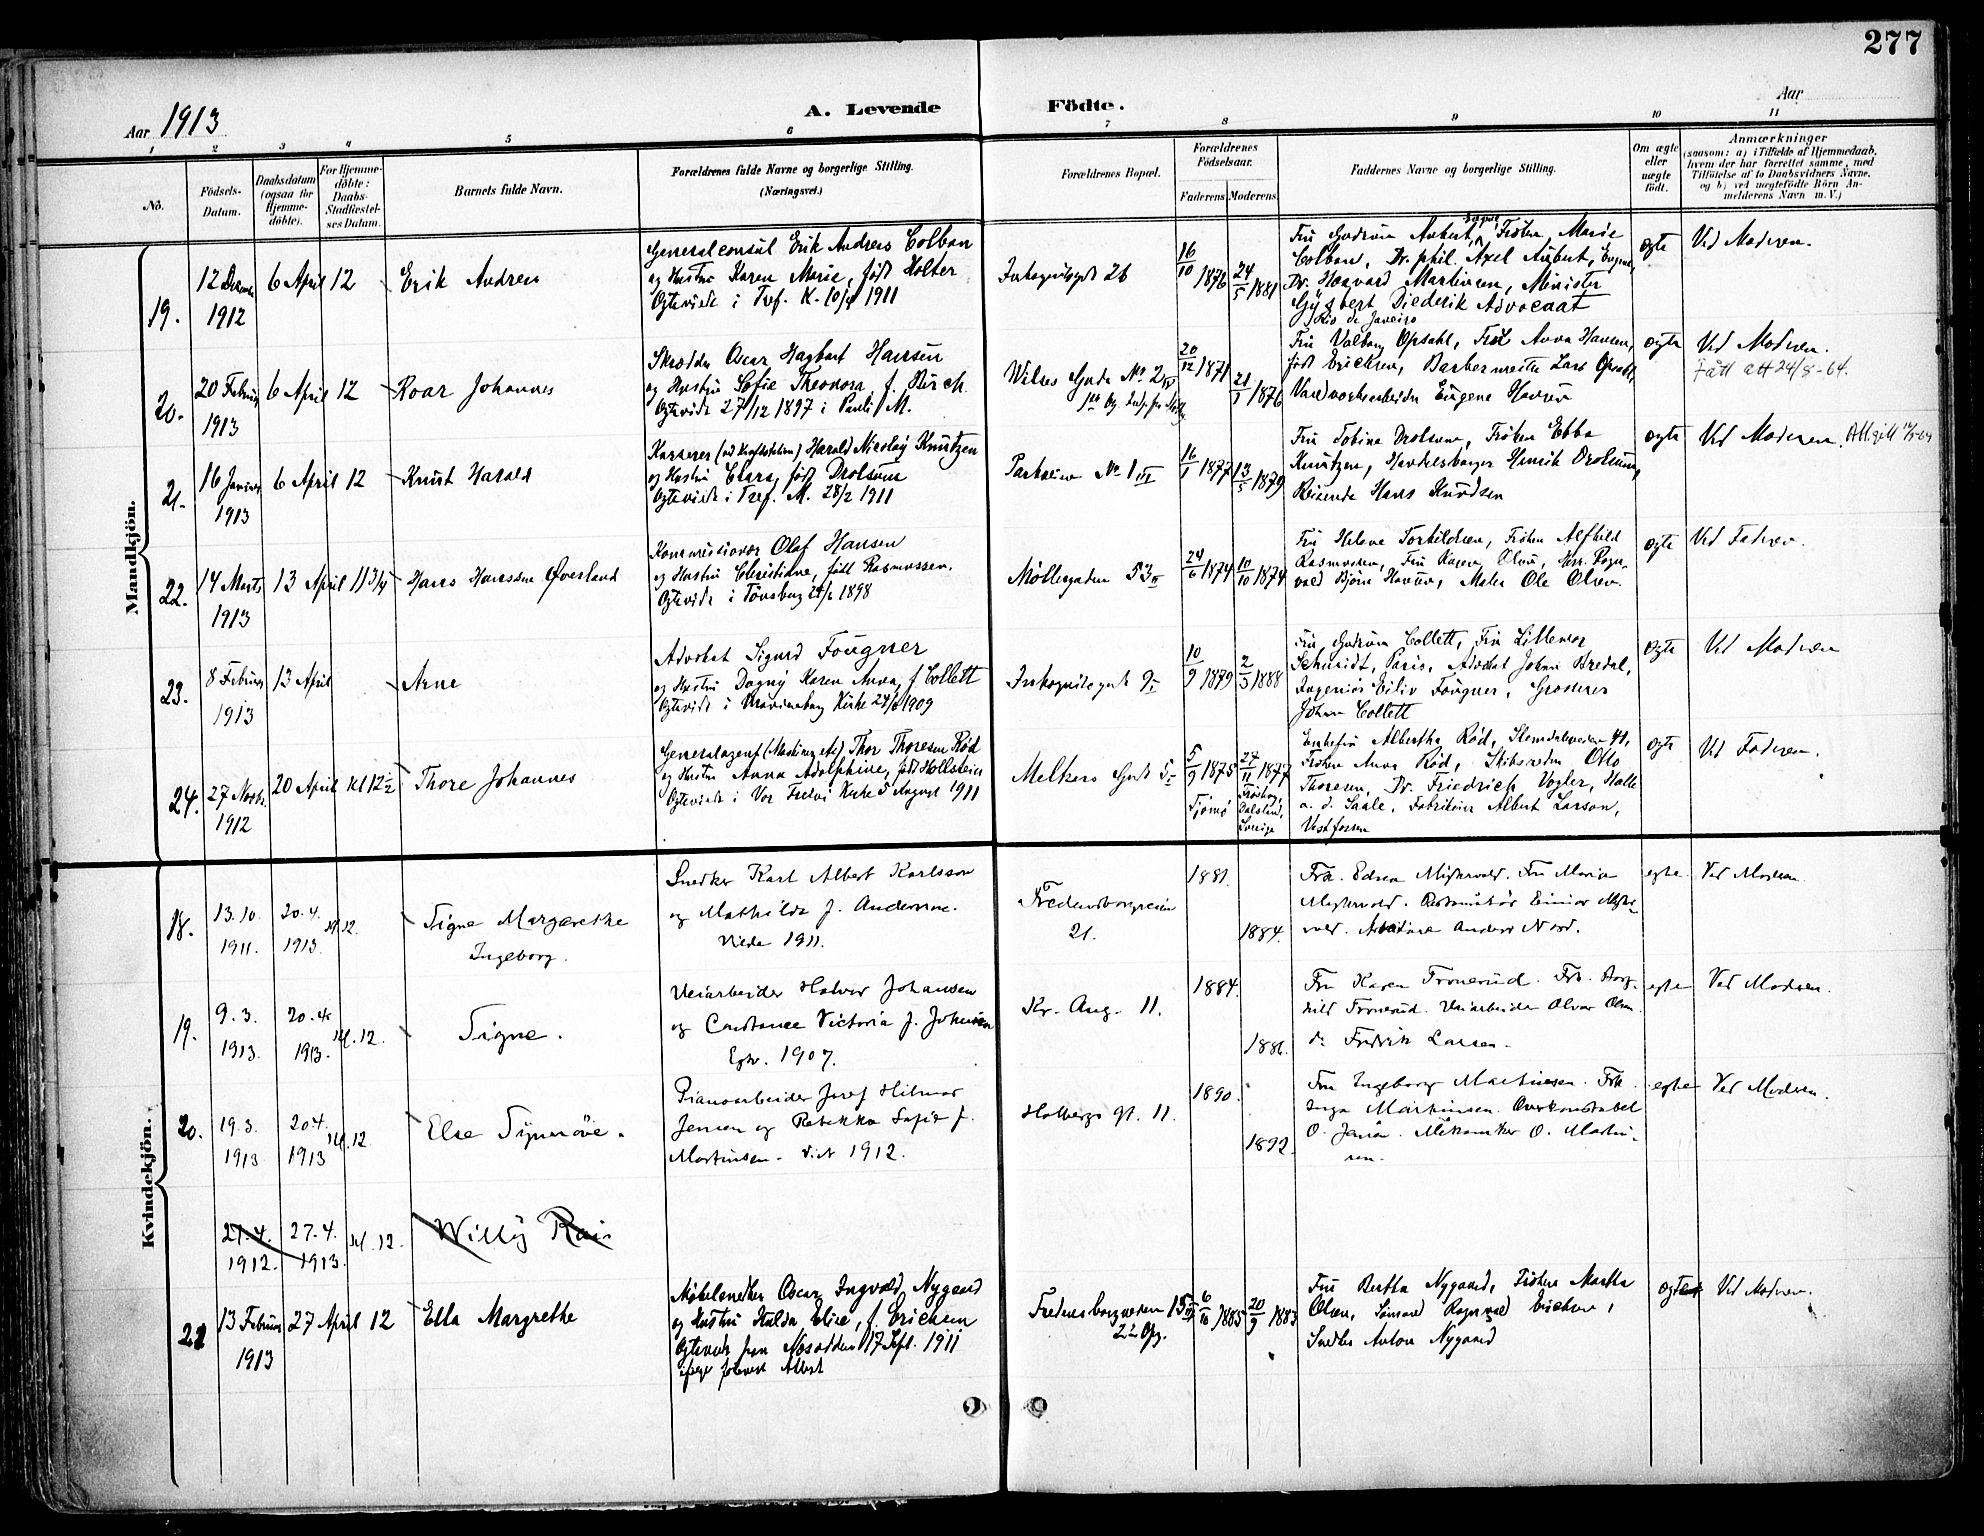 277
Aar 1913
A. Levende Födte.
Aar
1 2 3 4 5 6 7 8 9 10 11
No.
Födsels-Datum.
Daabsdatum (ogsaa for Hjemmedöbte).
For Hjemmedöbte: Daabs-Stadfæstelses Datum.
Barnets fulde Navn.
Forældrenes fulde Navne og borgerlige Stilling.
(Næringsvei.)
Forældrenes Bopæl.
Forældrenes Födselsaar.
Faderens Moderens
Faddernes Navne og borgerlige Stilling.
Om ægte eller uægte födt.
Anmærkninger
(saasom: a) i Tilfælde af Hjemmedaab, hvem der har forrettet samme, med Tilföielse af to Daabsvidners Navne, og b) ved uægtefödte Börn Anmelderens Navn m. V.)
Mandkjön.
19. 12 1912 6 April 12 Erik Andreas
Generalconsul Erik Andreas Colban
og Hustru Karen Marie, født Holter
Ogteviede i Tref. K. 1911
Inkognitogt 26
16/10 1876 24/5 1881
Fru Gudrun Aubert, Frøken Marie
Colban, Dr. phil. Axel Aubert,
Dr. Haagvard Martinsen, Minister
Diederik Advocaat
Rio de Janeiro
ogte Ved Moderen.
20. 20 Februar 1913 6 April 12 Roar Johannes
Skrædder Oscar Hagbart Hansen
og Hustru Sofie Theodora, f. Birch
Ogteviede 27/12 1897 i Pauli M.
Wilses Gade No 2 IV
20/12 1871 1876
Fru Valborg Opsahl, Fru Anna Hansen,
født Erichsen, Barbermester Lars Opsahl,
Eugene Hansen
ogte Ved Moderen.
Fått att 24/8-64.
21. 16 Januar 1913 6 April 12 Knut Harald
Kasserer Harald Nicolay Knutzen
og Hustru Clara, født Drolsum
Ogteviede i Tref. M. 28/2 1911
Parkveien No 1 III
1877 13/5 1879
Fru Tobine Drolsum, Frøken Ebba
Knutzen, Handelsborger Henrik Drolsum,
Reisende Hans Knudsen
ogte Ved Moderen.
22. 14 Marts 1913 13 April 1 3/4 Hans Hanssøn Øverland
Kommissioner Olaf Hansen
og Hustru Christiane, født Rasmussen.
Ogteviede i Tønsberg 1898
Møllergaden 53 IV
24/6 1874 10/10 1874
Fru Helene Torkildsen, Frøken Alfhild
Rasmussen, Fru Karen Olsen, Herr Ragnvald
Bjørn Hansen, Maler Ole Olsen.
ogte Ved Faderen.
23. 8 Februar 1913 13 April Arne
Advokat Sigurd Fougner
og Hustru Dagny Karen Anna, f. Collett
Ogteviede i Kirke 1909
Inkognitogade 9 I
10/9 1879 2/3 1888
Fru Gudrun Collett, Fru Lillemor
Schmidt, Paris, Advokat Johan Bredal,
Ingeniør Eiliv Fougner, Grosserer
Johan Collett
ogte Ved Moderen
24. 27 1912 20 April Kl 12½ Thore Johannes
Generalagent (Maskiner etc) Thor Thoresen Rød
og Hustru Anna Adolphine, født Hollsteier
Ogteviede i Vor Frelsers Kirke 5 August 1911
Meltzers Gade 5
5/9 1875 Tjømø 27/11 1877 Dalsland, Sverige
Enkefru Albertha Rød, Slemdalsveien 41,
Frøken Anna Rød, Skibsreder Otto
Thoresen, Dr. Friedrich Vogler, Halle
a. d. Saale, Fabrikeier Albert Larson,
Vestfossen
ogte Ved Faderen.
Kvindekjön.
18. 13.10. 1911. 20.4. 1913. kl. 12. Signe Margarethe Ingeborg.
Snedker Karl Albert Karlsson
og Mathilda f. Andersson.
Viede 1911.
Fredensborgveien 21.
1881. 1884.
Fru Edna Fru Maria
egte Ved Moderen.
19. 9.3. 1913. 20.4. 1913. kl. 12. Signe.
Veiarbeider Halvor Johansen
og Constance Victoria f. Johnsen
Egtv. 1907.
Kr. Aug. 11.
1884. 1886.
Fru Karen Tronerud. Frk. Borghild
Tronerud. Veiarbeider Olvar Olsen.
do Fredrik Larsen.
egte Ved Moderen.
20. 19.3. 1913. 20.4. 1913 kl. 12 Else Synnöve.
Pianoarbeider Josef Hilmar
Jensen og Rebekka Sofie f.
Martinsen. Viet 1912.
Holbergs gt. 11.
1890. 1892.
Fru Ingeborg Martinsen. Frk.
Inga Martinsen. Overkonstabel
O. Jensen. Mekaniker O. Martinsen.
egte Ved Moderen.
27.4. 1912. 27.4. 1913. kl. 12. Willy
21 13 Februar 1913 27 April 12 Ella Margrethe
Møbelsnedker Oscar Ingvald Nygaard
og Hustru Hulda Elise, f. Erichsen
Ogteviede paa Nesodden 17 Sept. 1911
Fredensborgveien 15
22 Opg.
6/10 1885 20/9 1883
Fru Bertha Nygaard, Frøken Martha
Olsen, Sømand Ragnvald Erichsen,
Snedker Anton Nygaard
ogte Ved Moderen.